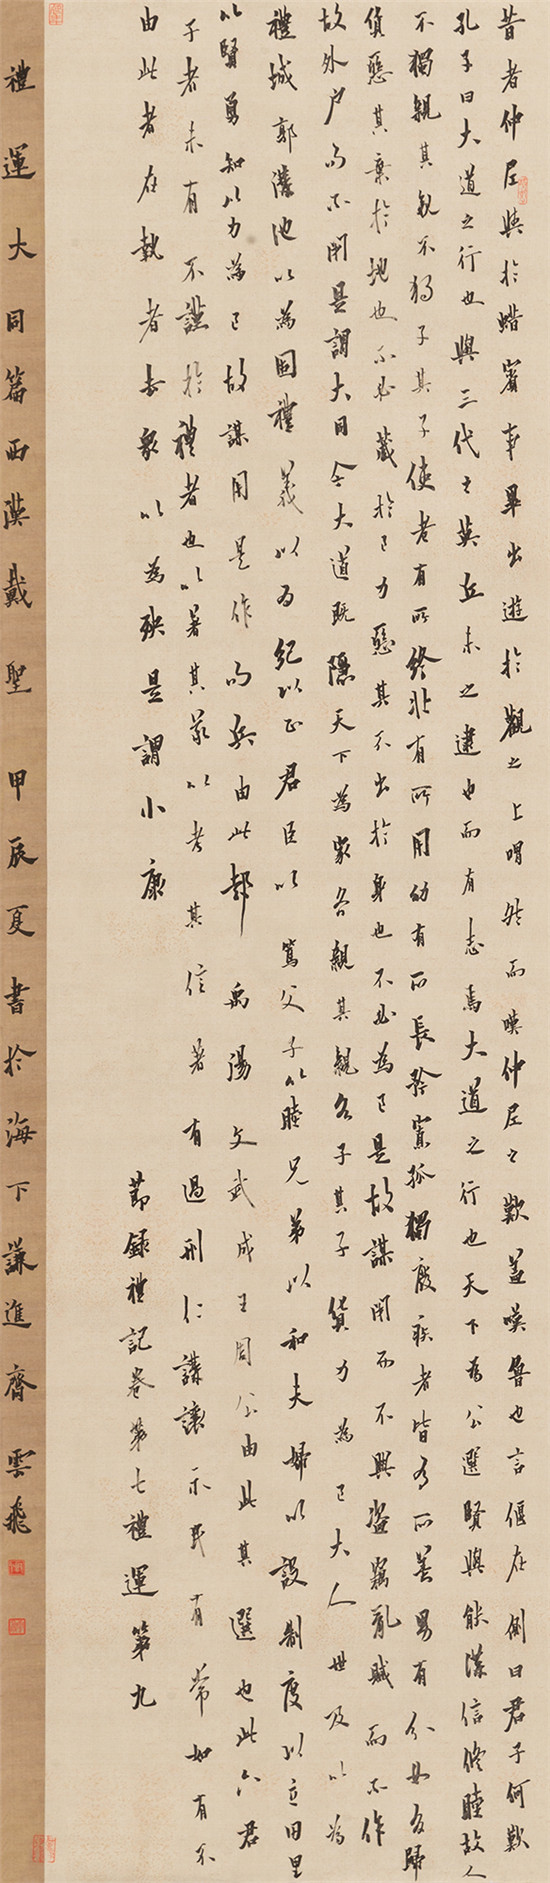 昔者仲尼與於蜡賓事畢出遊於觀之上喟然而嘆仲尼之歎蓋嘆魯也言偃在側曰君子何歎
孔子曰大道之行也與三代之英丘未之逮也而有志焉大道之行也天下為公選賢與能講信修睦故人
不獨親其親不獨子其子使老有所終壯有所用幼有所長矜寡孤獨廢疾者皆有所養男有分女有歸
貨惡其棄於地也不必藏於己力惡其不出於身也不必為己是故謀閉而不興盜竊亂賊而不作
故外戶而不閉是謂大同今大道既隱天下為家各親其親各子其子貨力為己大人世及以為
禮城郭溝池以為固禮義以為紀以正君臣以篤父子以睦兄弟以和夫婦以設制度以立田里
以賢勇知以力為己故謀用是作而兵由此起禹湯文武成王周公由此其選也此六君
子者未有不謹於禮者也以著其義以考其信著有過刑仁講讓示民有常如有不
由此者在執者去眾以為殃是謂小康
節錄禮記卷第七禮運第九
禮運大同篇西漢戴聖 甲辰夏書於海下謙進齋雲飛